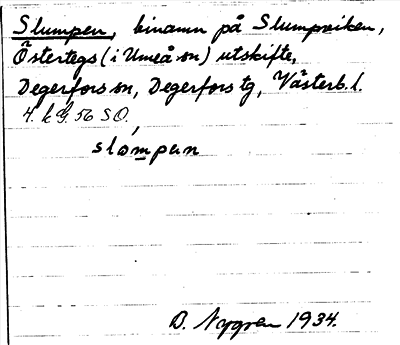 Slumpen, binamn på Slumpviken,
Östertegs (i Umeå sn) utskifte,
Degerfors sn, Degerfors tg, Västerb. l.
4. k G. 56 SO.
slompen
D. Nygren 1934.